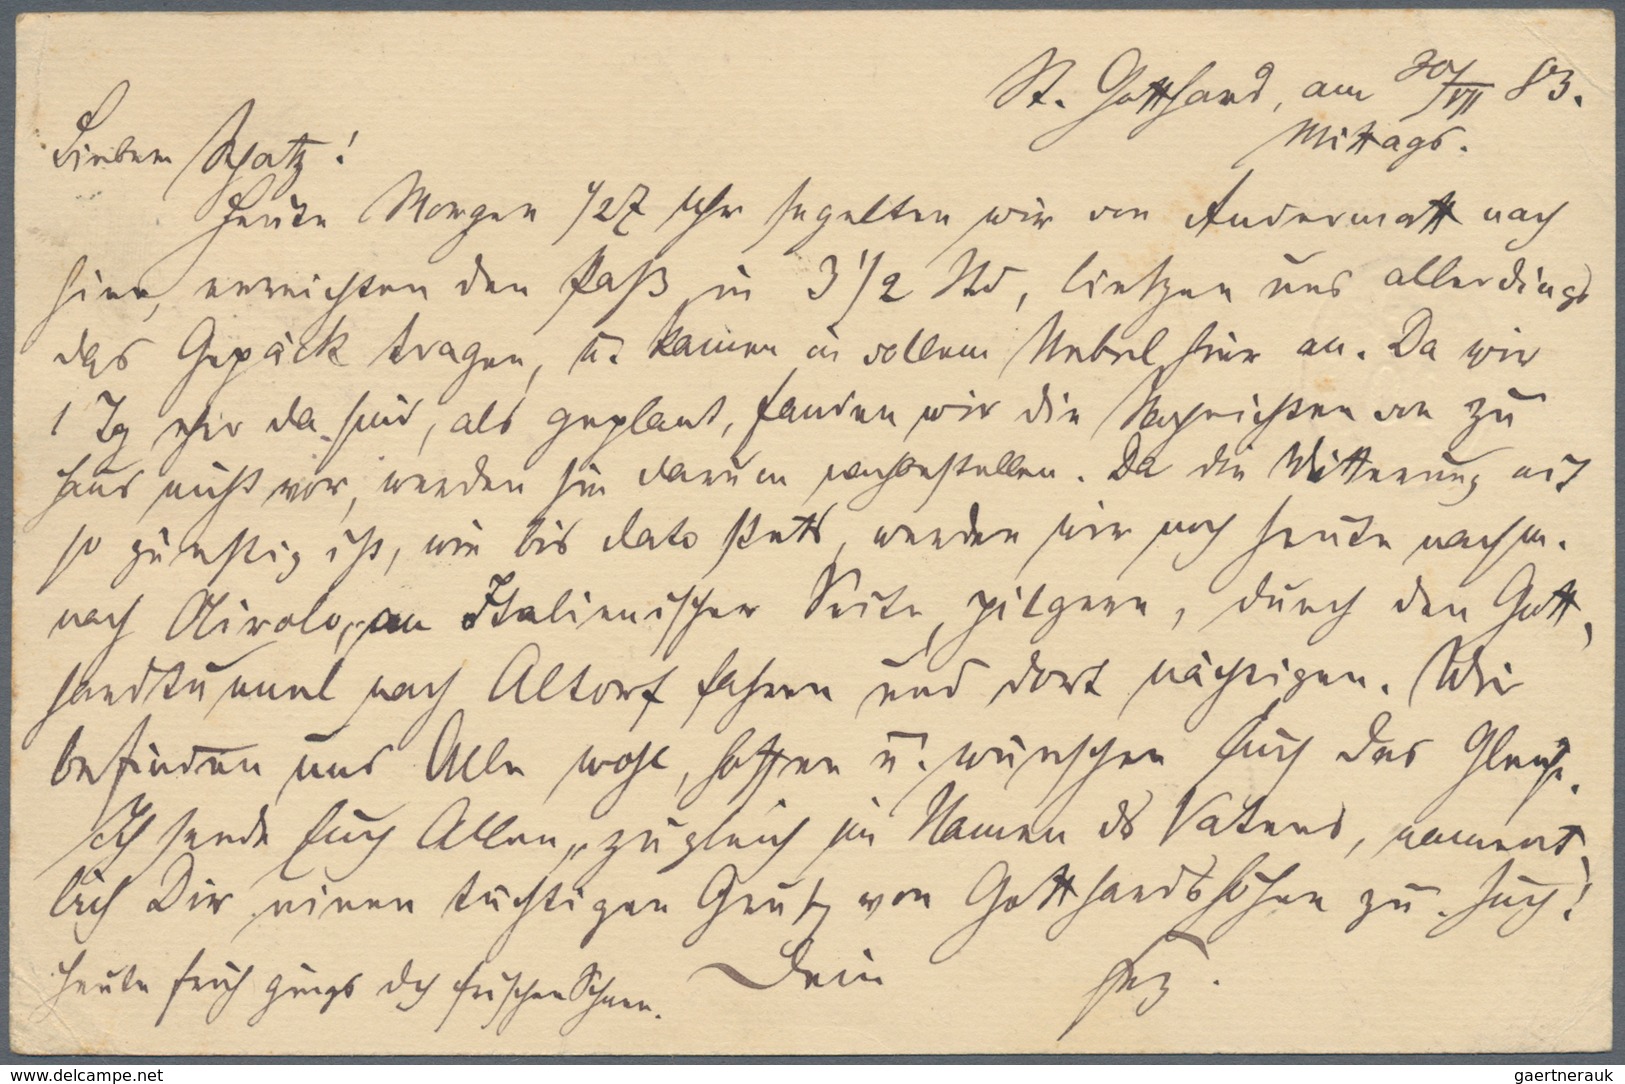 St. Gotthard, am 30/VII 83.
Mittags.
Lieber Schatz!
Heute Morgen 1/27 Uhr segelten wir von Andermatt nach
hier, erreichten den Paß in 3 1/2 Std, ließen uns allerdings
das Gepäck tragen, u. kamen in vollem Nebel hier an. Da wir
1 Tg ehr da sind, als geplant, fanden wir die Nachrichten von zu
Haus nicht vor, werden sie darum nachbestellen. Da die Witterung nit
so günstig ist, wie bis dato stets, werden wir noch heute nachm.
nach Airolo, an Italienischer Seite, pilgern, durch den Gott-
hardtunnel nach Altorf fahren und dort nächtigen. Wir
befinden uns Alle wohl, hoffen u. wünschen Euch das Gleiche.
Ich sende Euch Allen, zugleich im Namen ds Vaters, nament-
lich Dir einen tüchtigen Gruß von Gotthardshöhen zu Euch!
Heute früh gings dch frischen Schnee. Dein
www.delcampe.net
gaertnerauk